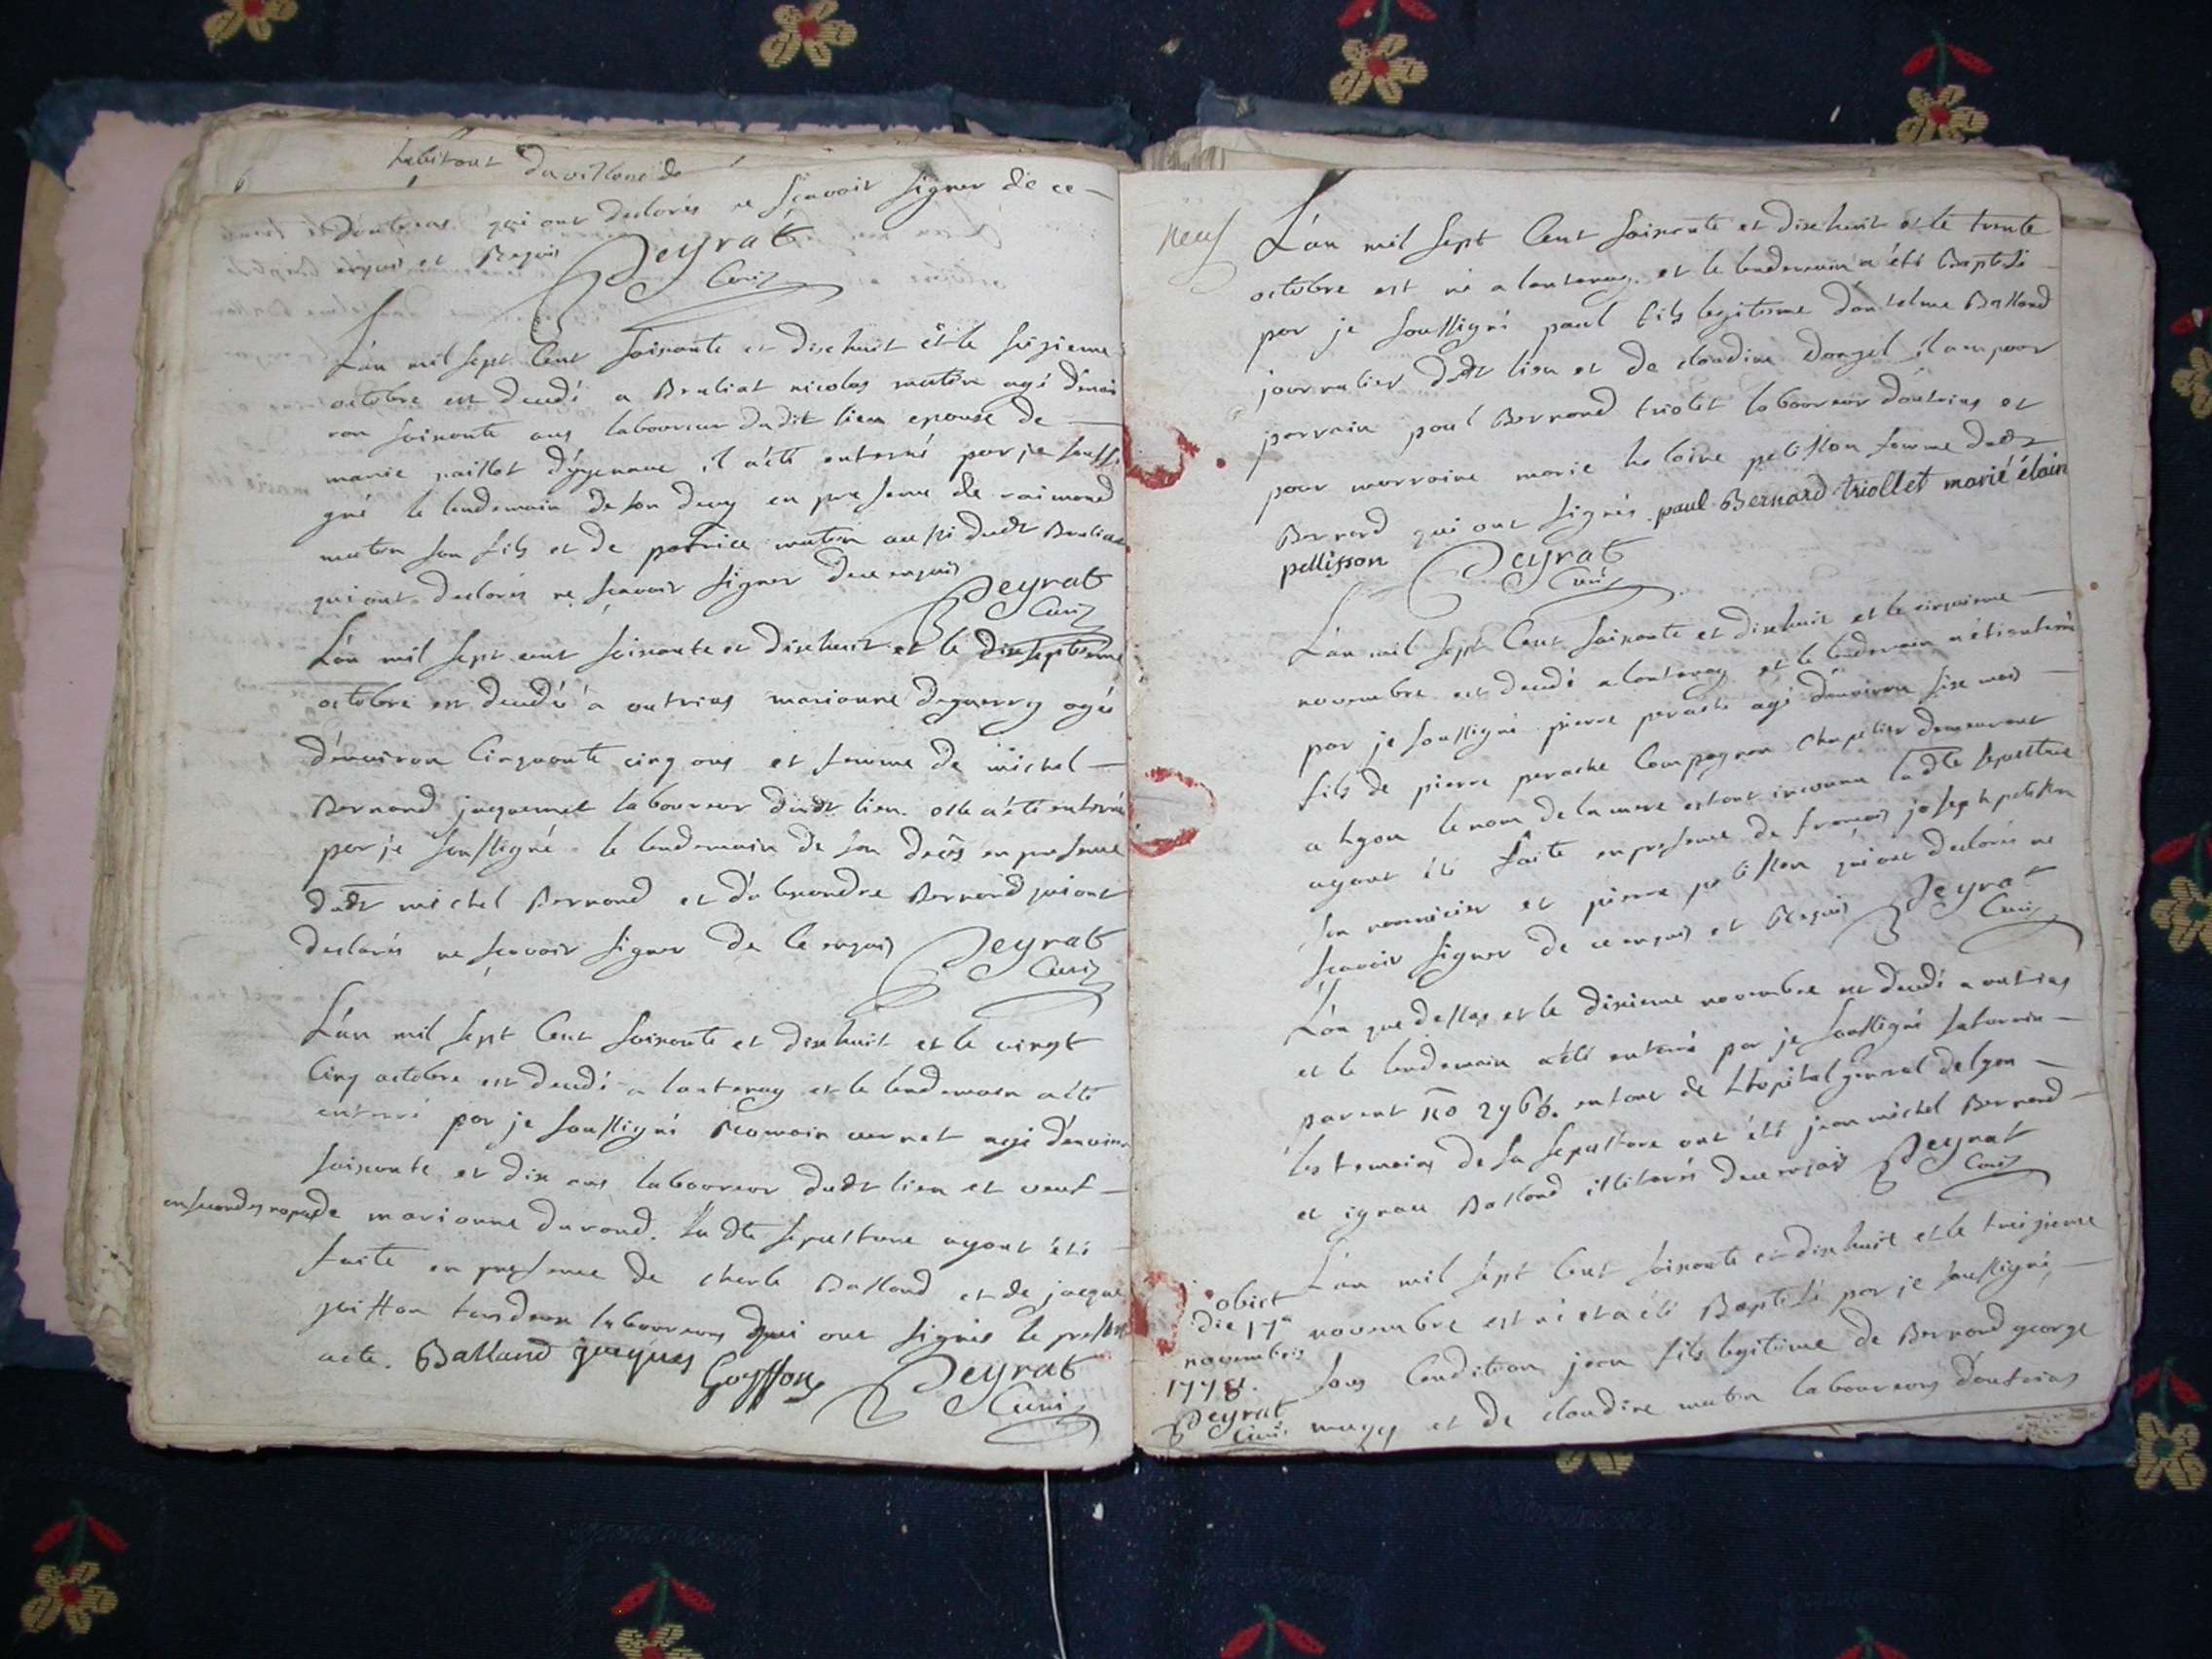 habitant du village de
d'outrias qui ont declarés ne sçavoir signer de ce
enquis et Requis Peyrat
Curé
L'an mil sept Cent soixante et dixehuit et le seizieme
octobre est decedé a Bruliat nicolas mutin agé d'envi
ron soixante ans laboureur dudit lieu epoux de
marie paillet il a été enterré par je soussi
gné le lendemain de son decez en presence de raimond
mutin son fils et de patrice mutin aussi dudt Bruliat
qui ont declarés ne sçavoir signer de ce enquis Peyrat
Curé
L'an mil sept cent soixante et dixehuit et le dixseptieme
octobre est decedée a outrias marianne deguerry agée
d'environ Cinquante cinq ans et femme de michel
Bernard jacquemet laboureur dudt lieu. elle a été enterrée
par je soussigné le lendemain de son decès en presence
dudt michel Bernard et d'alexandre Bernard qui ont
declarés ne sçavoir signer de ce enquis Peyrat
Curé
L'an mil sept Cent soixante et dixehuit et le vingt
Cinq octobre est decedé a lantenay et le lendemain a été
enterré par je soussigné Romain vernet agé d'environ
soixante et dix ans laboureur dudt lieu et veuf
en secondes nopces de marianne durand. Ladte sepulture ayant été
faite en presence de charle Balland et de jacque
goiffon laboureurs qui ont signés le present
acte. Balland jacques
Goyffon Peyrat
Curé
neuf
L'an mil sept Cent soixante et dixehuit et le trente
octobre est né a lantenay et le lendemain a été Baptisé
par je soussigné paul fils legitime d'antelme Balland
journalier dudt lieu et de claudine dongel il a eu pour
parrain paul Bernard triolet laboureur d'outrias et
pour marraine marie helaine pelisson femme dudt
Bernard qui ont signés paul Bernard triollet marié élain
pellisson Peyrat
Curé
L'an mil sept Cent soixante et dixehuit et le cinquieme
novembre est decedé a lantenay et le lendemain a été enterré
par je soussigné pierre perache agé d'environ sixe mois
fils de pierre perache Compagnon chapelier demeurant
a lyon le nom de la mere estant inconnu ladte sepulture
ayant été faite en presence de françois joseph pelisson
son nourricier et pierre pelisson qui ont declarés ne
sçavoir signer de ce enquis et Requis Peyrat
Curé
L'an que dessus et le dixieme novembre est decedé a outrias
et le lendemain a été enterré par je soussigné saturnin
parent no 2966. enfant de L'hopital general de lyon
les temoins de sa sepulture ont été jean michel Bernard
et ignace Balland illiterés de ce enquis Peyrat
Curé
L'an mil sept Cent soixante et dixehuit et le treizieme
novembre est né et a été Baptisé par je soussigné
sous Condition jean fils legitime de Bernard george
et de claudine mutin laboureurs d'outrias
obiit
die 17a
novembris
1778.
Peyrat
Curé